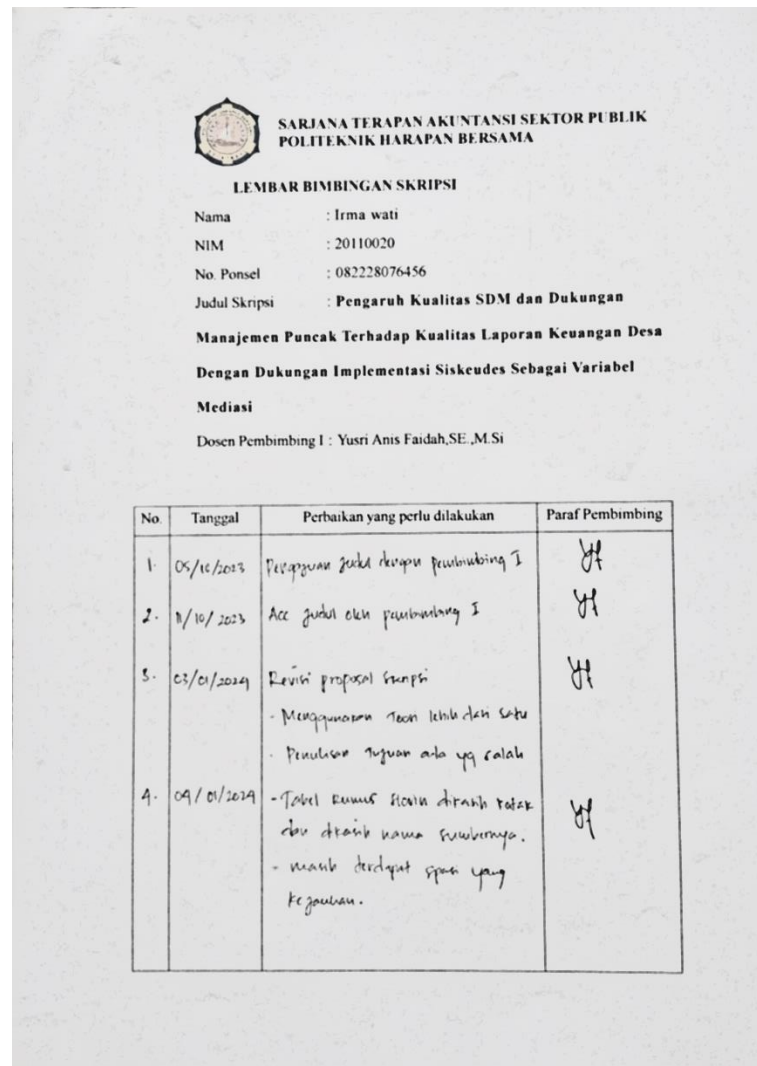 SARJANA TERAPAN AKUNTANSI SEKTOR PUBLIK
POLITEKNIK HARAPAN BERSAMA
LEMBAR BIMBINGAN SKRIPSI
Nama : Irma wati
NIM : 20110020
No. Ponsel : 082228076456
Judul Skripsi : Pengaruh Kualitas SDM dan Dukungan
Manajemen Puncak Terhadap Kualitas Laporan Keuangan Desa
Dengan Dukungan Implementasi Siskeudes Sebagai Variabel
Mediasi
Dosen Pembimbing I : Yusri Anis Faidah,SE.,M.Si
No. Tanggal Perbaikan yang perlu dilakukan Paraf Pembimbing
1. 05/10/2023 Pengajuan Judul dengan pembimbing I
2. 11/10/2023 Acc Judul oleh pembimbing I
3. 03/01/2024 Revisi proposal skripsi
- Menggunakan Teori lebih dari satu
- Penulisan Tujuan ada yg salah
4. 04/01/2024 - Tabel Rumus Slovin dikasih kotak
dan dikasih nama sumbernya.
- masih terdapat spasi yang
kejauhan.